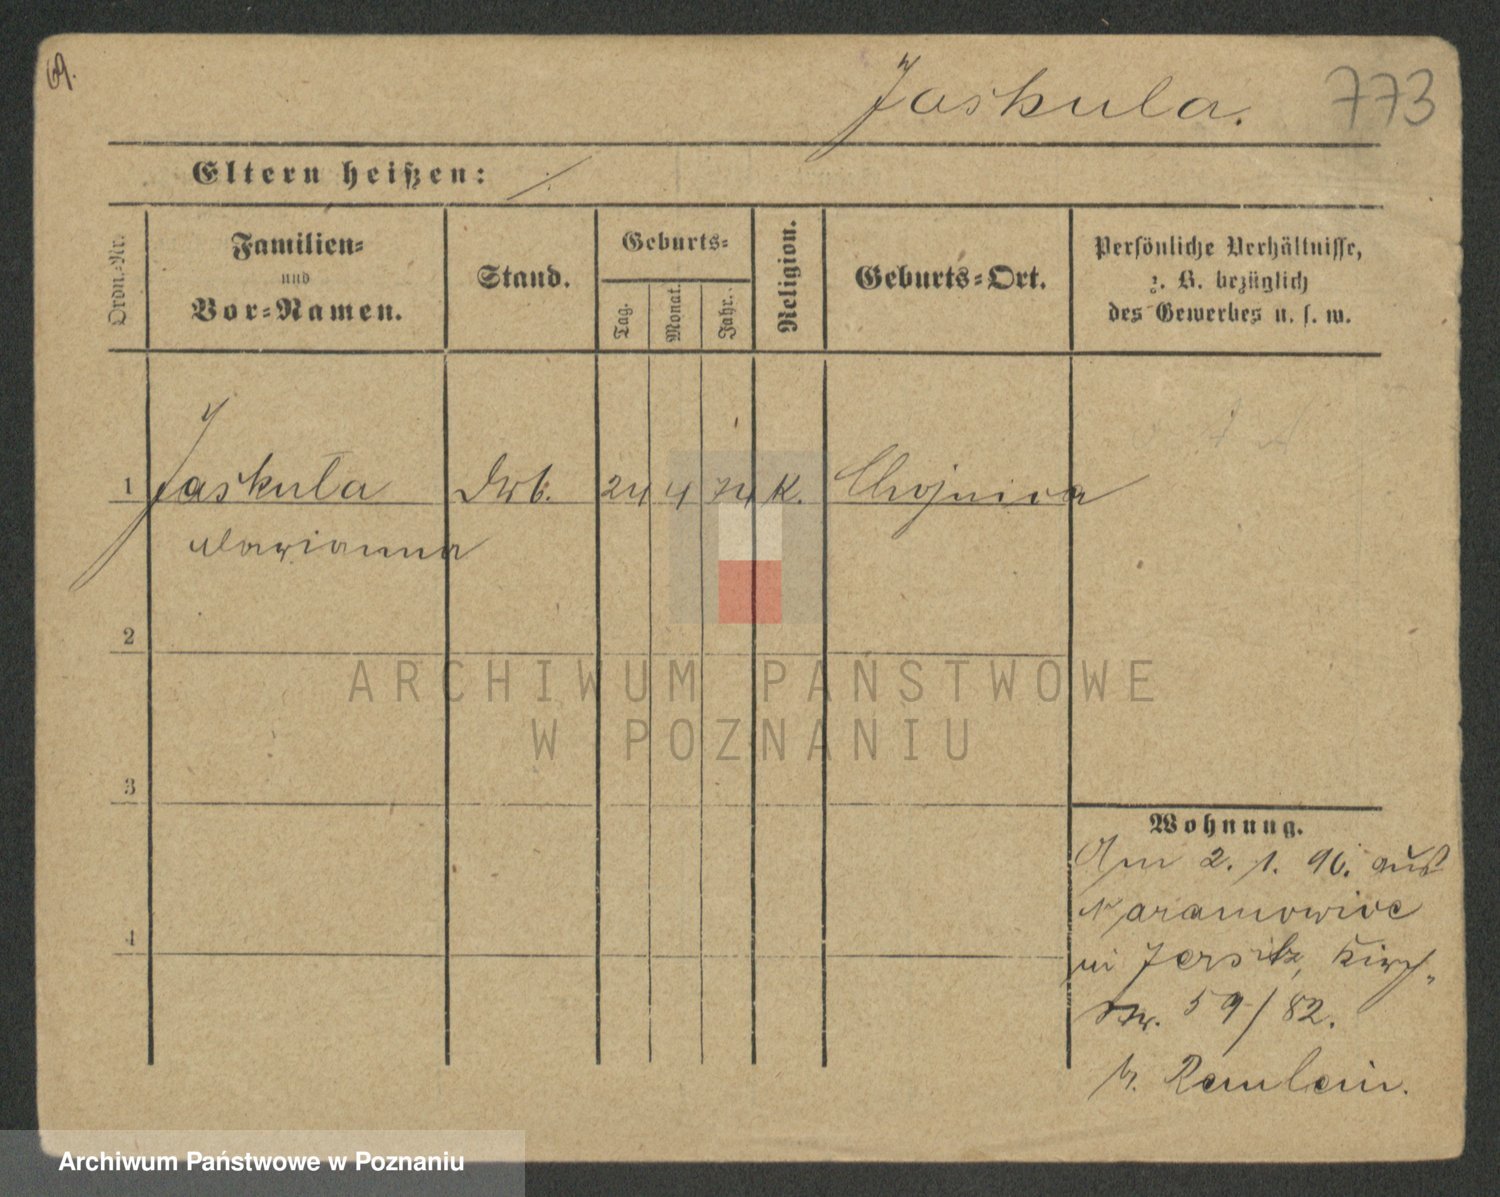 69.
Jaskula.
773
Eltern heißen: /
Ordn.-Nr.
Familien-
und
Vor-Namen.
Stand.
Geburts-
Tag.
Monat.
Jahr.
Religion.
Geburts-Ort.
Persönliche Verhältnisse,
z. B. bezüglich
des Gewerbes u. s. w.
1 Jaskuła 24 4 74 K. Chojnica
Marianna
2
ARCHIWUM PAŃSTWOWE
W POZNANIU
3
Wohnung.
Am 2. 1. 96. aus
Naramowice
in Jersitz, Kirch-
4
str. 59/82.
b.
Archiwum Państwowe w Poznaniu